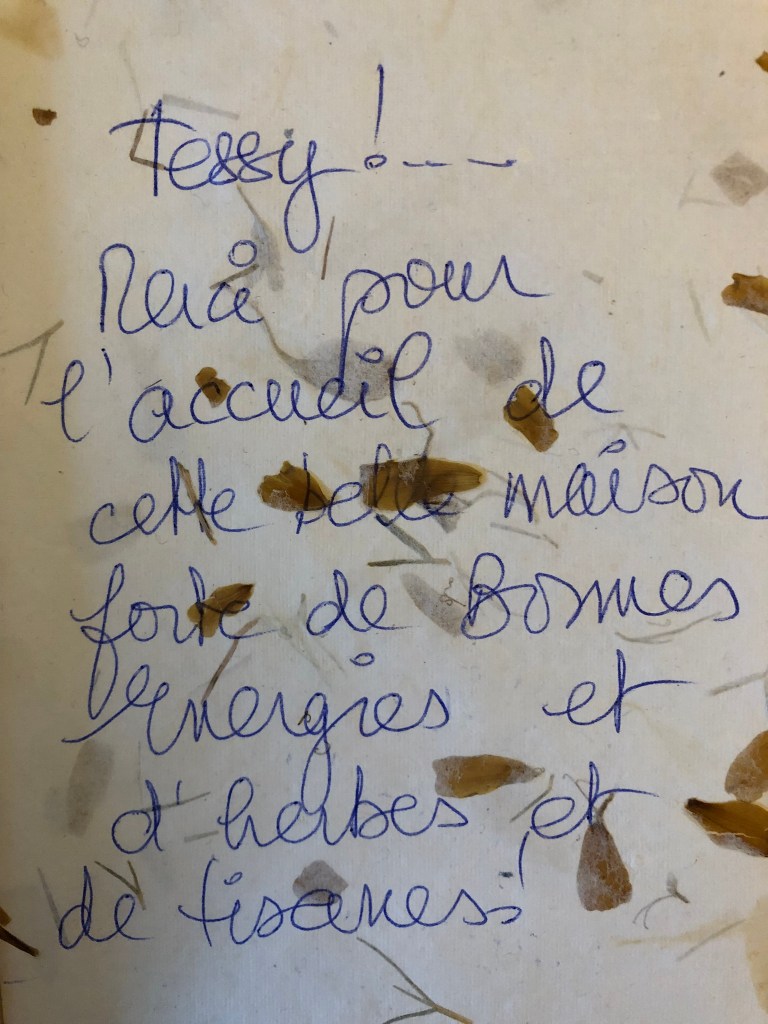 Tessy !---
Merci pour
l'accueil de
cette belle maison
forte de Bonnes
Energies et
d'herbes et
de tisanes!